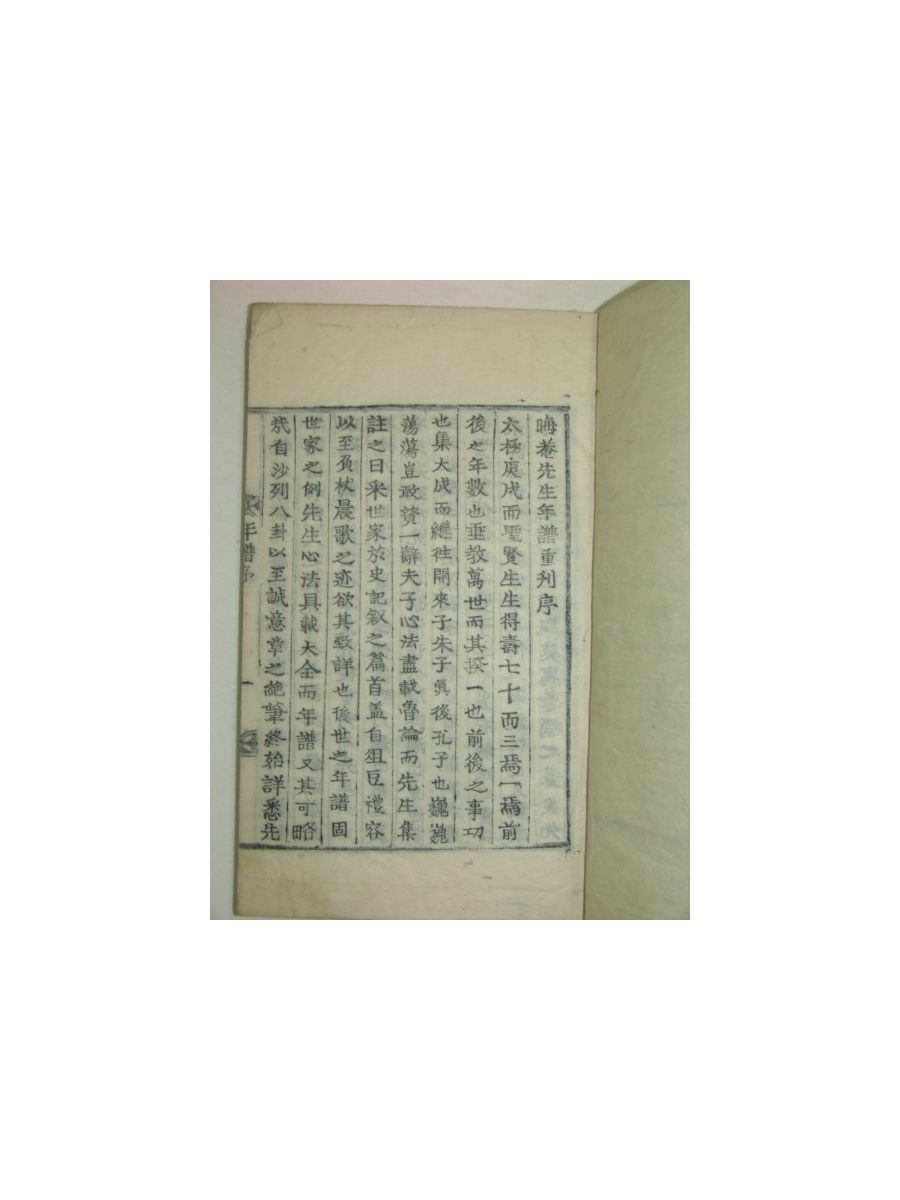 晦菴先生年譜重刋序
太極庚戌而聖賢生生得壽七十而三焉一焉前
後之年數也垂敎萬世而其揆一也前後之事功
也集大成而繼徃開來子朱子眞後孔子也巍巍
蕩蕩豈敢贊一辭夫子心法盡載魯論而先生集
註之曰采世家於史記叙之篇首盖自俎豆禮容
以至負杖晨歌之迹欲其致詳也後世之年譜固
世家之例先生心法具載大全而年譜又其可略
㢤自沙列八卦以至誠意章之絶筆終始詳悉先
年譜序
一